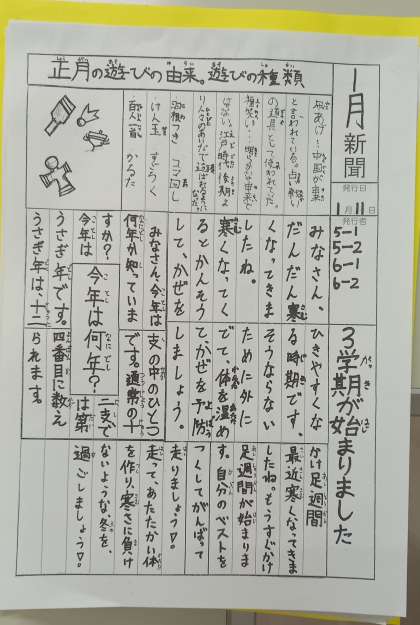 1月新聞
発行日
1月11日
発行者
5-1
5-2
6-1
6-2
正月の遊びの由来。遊びの種類
と言われている。
の道具として使われていた。
はない。江戸時代後期よ
羽根つき コマ回し
けん玉 すごろく
百人一首 かるた
3学期が始まりました
みなさん、
だんだん寒
くなってきま
したね。
寒くなってく
るとかんそう
して、かぜを
ひきやすくな
る時期です、
そうならない
ために外に
でて、体を温め
て、かぜを予防
しましょう。
今年は何年?
みなさん、今年は
何年か知っていま
すか?
今年は
うさぎ年です。
うさぎ年は、十二
支の中のひとつ
です。通常の十
二支で
は第
四番目に数え
られます。
かけ足週間
最近寒くなってきま
したね。もうすぐかけ
足週間が始まりま
す。自分のベストを
つくしてがんばって
走りましょう▽。
走って、あたたかい体
を作り、寒さに負け
ないような、冬を、
過ごしましょう▽。